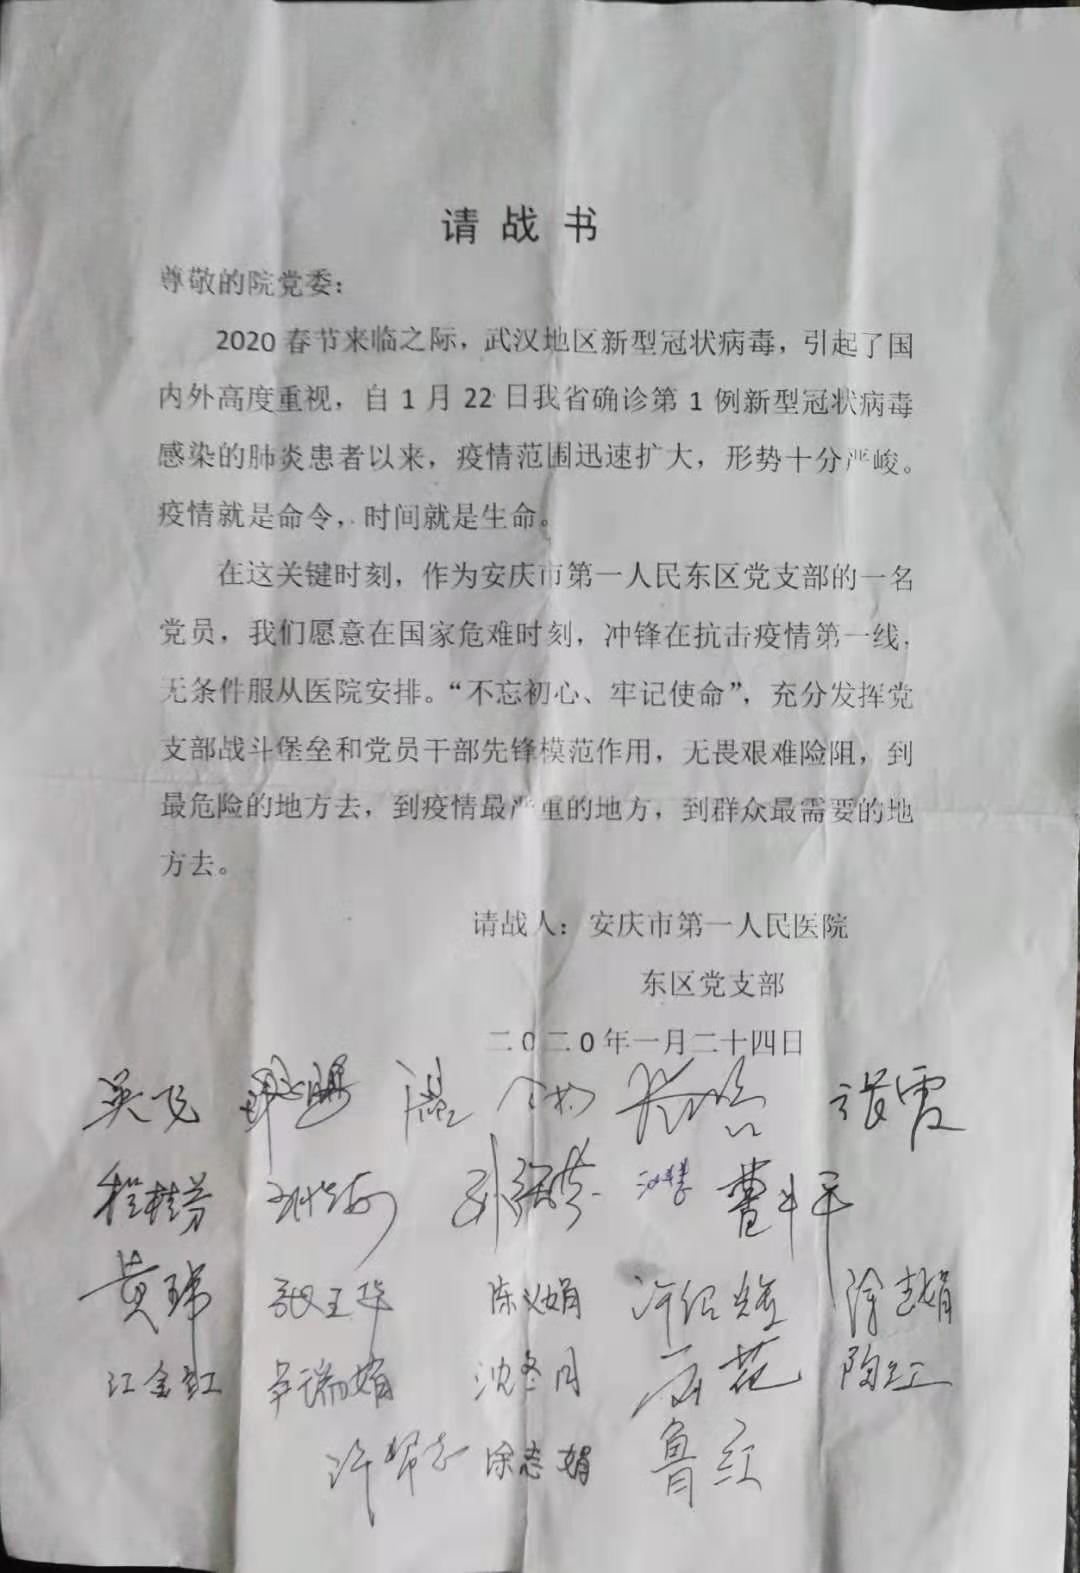 请战书
尊敬的院党委：
2020 春节来临之际，武汉地区新型冠状病毒，引起了国
内外高度重视，自 1 月 22 日我省确诊第 1 例新型冠状病毒
感染的肺炎患者以来，疫情范围迅速扩大，形势十分严峻。
疫情就是命令，时间就是生命。
在这关键时刻，作为安庆市第一人民东区党支部的一名
党员，我们愿意在国家危难时刻，冲锋在抗击疫情第一线，
无条件服从医院安排。“不忘初心、牢记使命”，充分发挥党
支部战斗堡垒和党员干部先锋模范作用，无畏艰难险阻，到
最危险的地方去，到疫情最严重的地方，到群众最需要的地
方去。
请战人：安庆市第一人民医院
东区党支部
二0二0年一月二十四日
吴飞 张霞
程桂芬
黄玮 陈义娟 许绍 徐志娟
江金红 卓瑞娟 沈冬月 花 陶红
徐志娟 鲁红